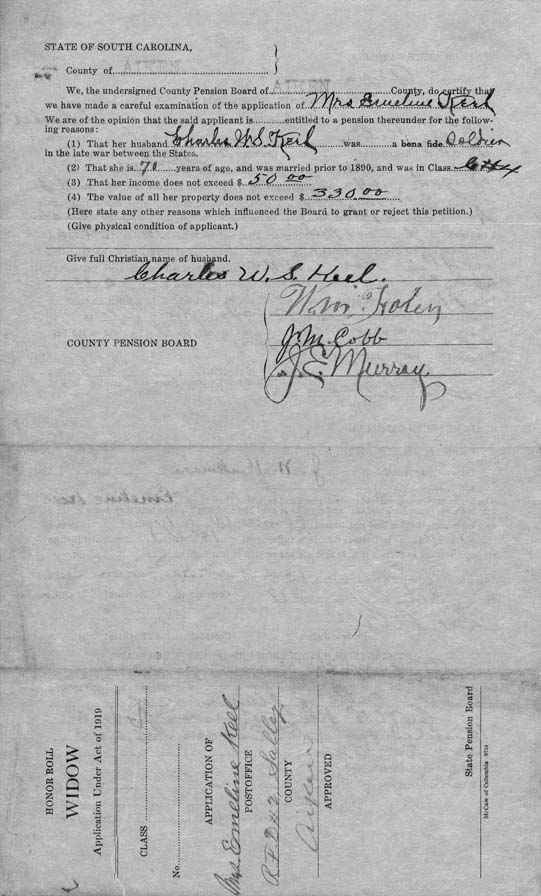 STATE OF SOUTH CAROLINA,
County of
We, the undersigned County Pension Board of County, do certify that
we have made a careful examination of the application of Mrs Emeline Keel
We are of the opinion that the said applicant is entitled to a pension thereunder for the follow-
ing reasons:
(1) That her husband Charles W. S. Keel was a bona fide Soldier
in the late war between the States.
(2) That she is 71 years of age, and was married prior to 1890, and was in Class
(3) That her income does not exceed $ 50 00
(4) The value of all her property does not exceed $ 330 00
(Here state any other reasons which influenced the Board to grant or reject this petition.)
(Give physical condition of applicant.)
Give full Christian name of husband.
Charles W. S. Keel.
COUNTY PENSION BOARD
J. M. Cobb
J. E. Murray.
HONOR ROLL
WIDOW
Application Under Act of 1919
CLASS
No.
APPLICATION OF
Mrs Emeline Keel
POSTOFFICE
R F D #2 Salley
COUNTY
Aiken
APPROVED
State Pension Board
McCaw of Columbia